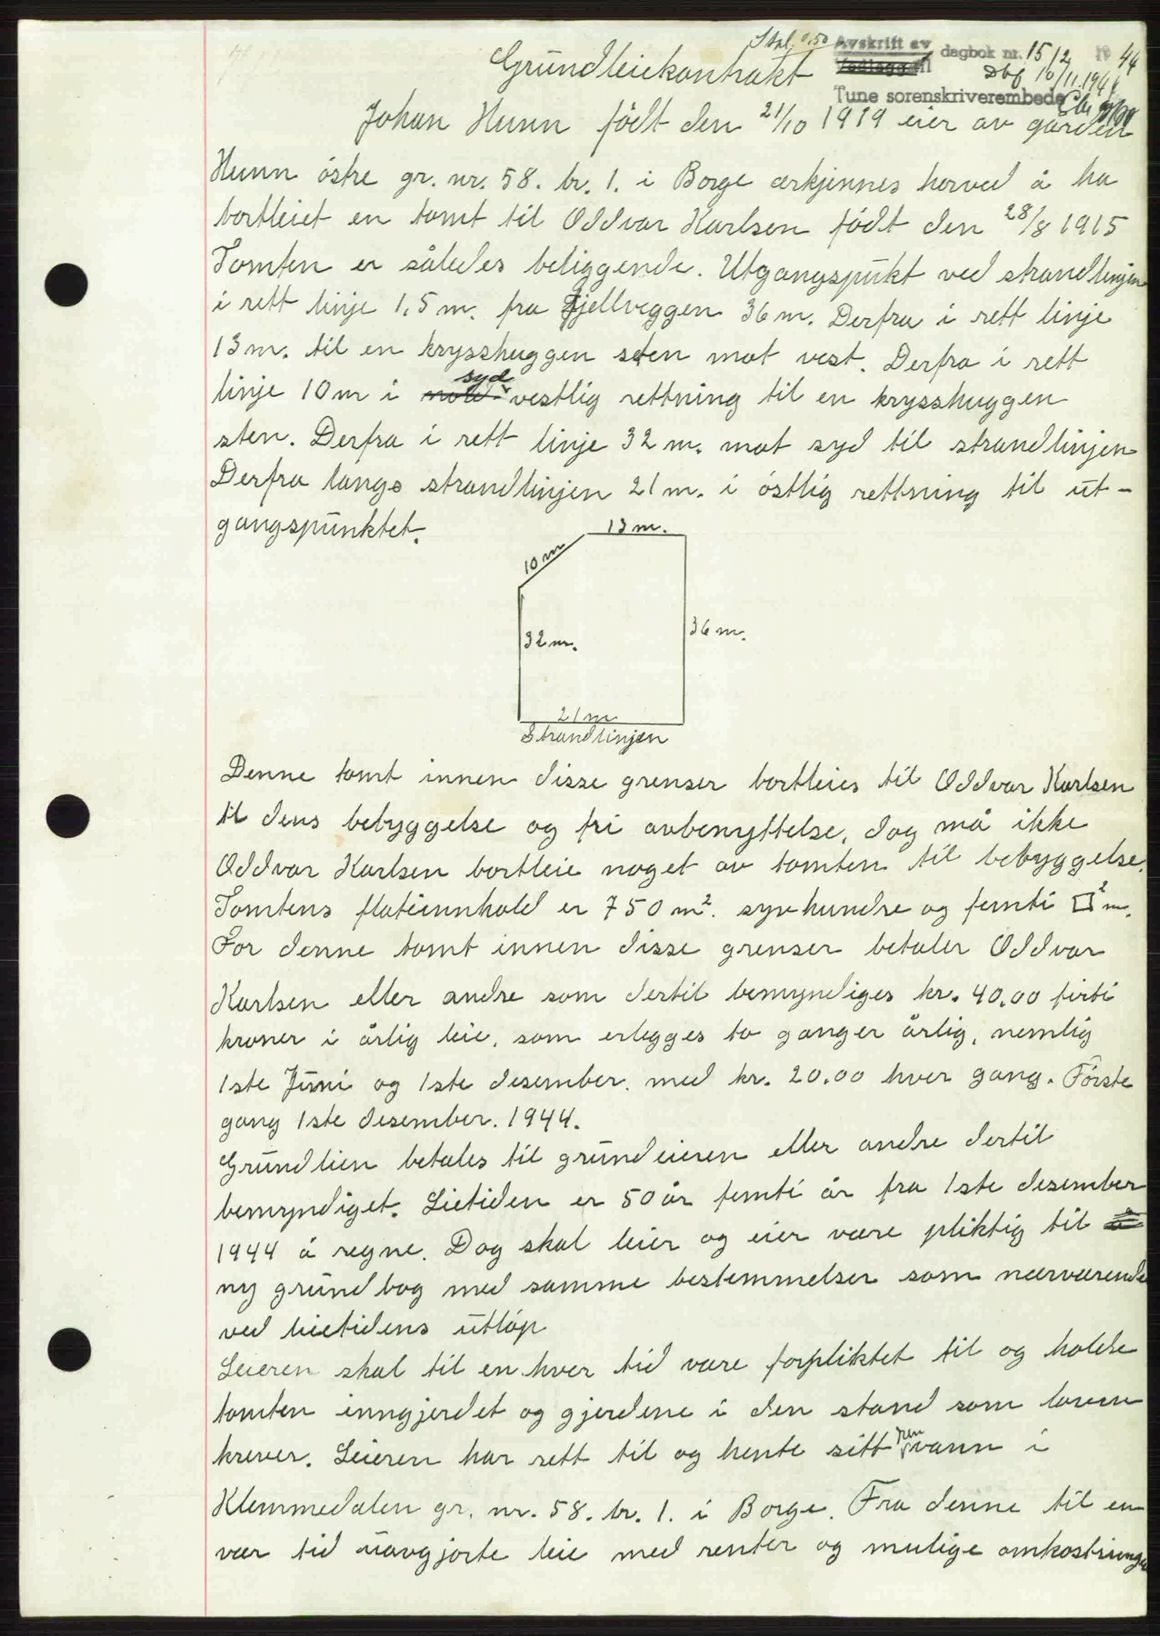 Stpl. 0.50
Avskrift av dagbok nr. 1512 1944
Vedlegg til Dbf 10/11.1944
Tune sorenskriverembede
Grundleiekontrakt
Johan Hunn født den 21/10 1919 eier av gården
Hunn östre gr. nr. 58. br. 1. i Borge erkjennes herved å ha
bortleiet en tomt til Oddvar Karlsen født den 28/8 1915
Tomten er således beliggende. Utgangspukt ved strandlinjen
i rett linje 1,5 m. fra fjellveggen 36 m. Derfra i rett linje
13 m. til en krysshuggen sten mot vest. Derfra i rett
linje 10 m i syd vestlig rettning til en krysshuggen
sten. Derfra i rett linje 32 m. mot syd til strandlinjen
Derfra langs strandlinjen 21 m. i östlig rettning til ut-
gangspunktet.
13 m.
10 m
32 m.
36 m.
21 m
Strandlinjen
Denne tomt innen disse grenser bortleies til Oddvar Karlsen
til dens bebyggelse og fri avbenyttelse, dog må ikke
Oddvar Karlsen bortleie noget av tomten til bebyggelse.
Tomtens flateinnhold er 750 m². syvhundre og femti □² m.
For denne tomt innen disse grenser betaler Oddvar
Karlsen eller andre som dertil bemyndiges kr. 40.00 firti
kroner i årlig leie, som erlegges to ganger årlig, nemlig
1ste Juni og 1ste desember. med kr. 20.00 hver gang. Förste
gang 1ste desember. 1944.
Grundlien betales til grundeieren eller andre dertil
bemyndiget. Lietiden er 50 år femti år fra 1ste desember
1944 å regne. Dog skal leier og eier være pliktig til
ny grundbog med samme bestemmelser som nærværende
ved lietidens utløp
Leieren skal til en hver tid være forpliktet til og holde
tomten inngjerdet og gjerdene i den stand som loven
krever. Leieren har rett til og hente sitt vann i
Klemmedalen gr. nr. 58. br. 1. i Borge. Fra denne til en
vær tid uavgjorte leie med renter og mulige omkostninger